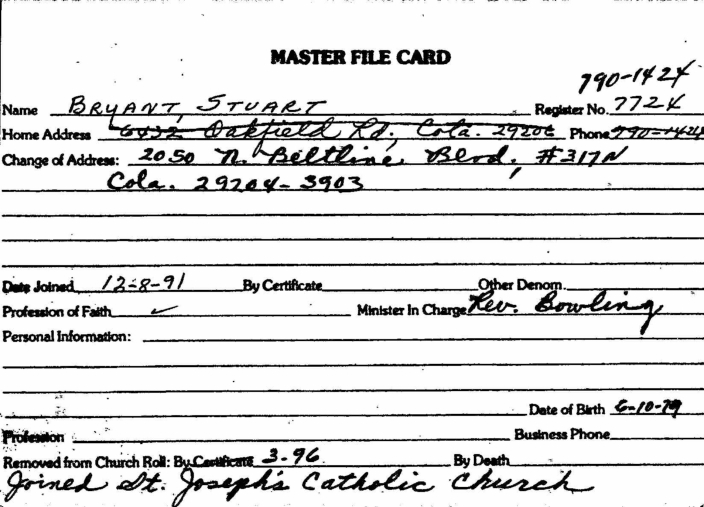 MASTER FILE CARD
790-1424
Name BRYANT, STUART Register No. 7724
Home Address 6432 Oakfield Rd, Cola. 29206 Phone 790-1424
Change of Address: 2050 N. Beltline Blvd, #317N
Cola. 29204-3903
Date Joined 12-8-91 By Certificate Other Denom.
Profession of Faith ✓ Minister In Charge Rev. Bowling
Personal Information:
Date of Birth 6-10-79
Profession Business Phone
Removed from Church Roll: By Certificate 3-96 By Death
Joined St. Joseph's Catholic Church